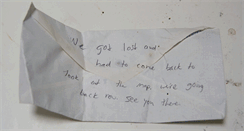 I've got lost and
had to come back to
look at the map. We're going
back now see you there